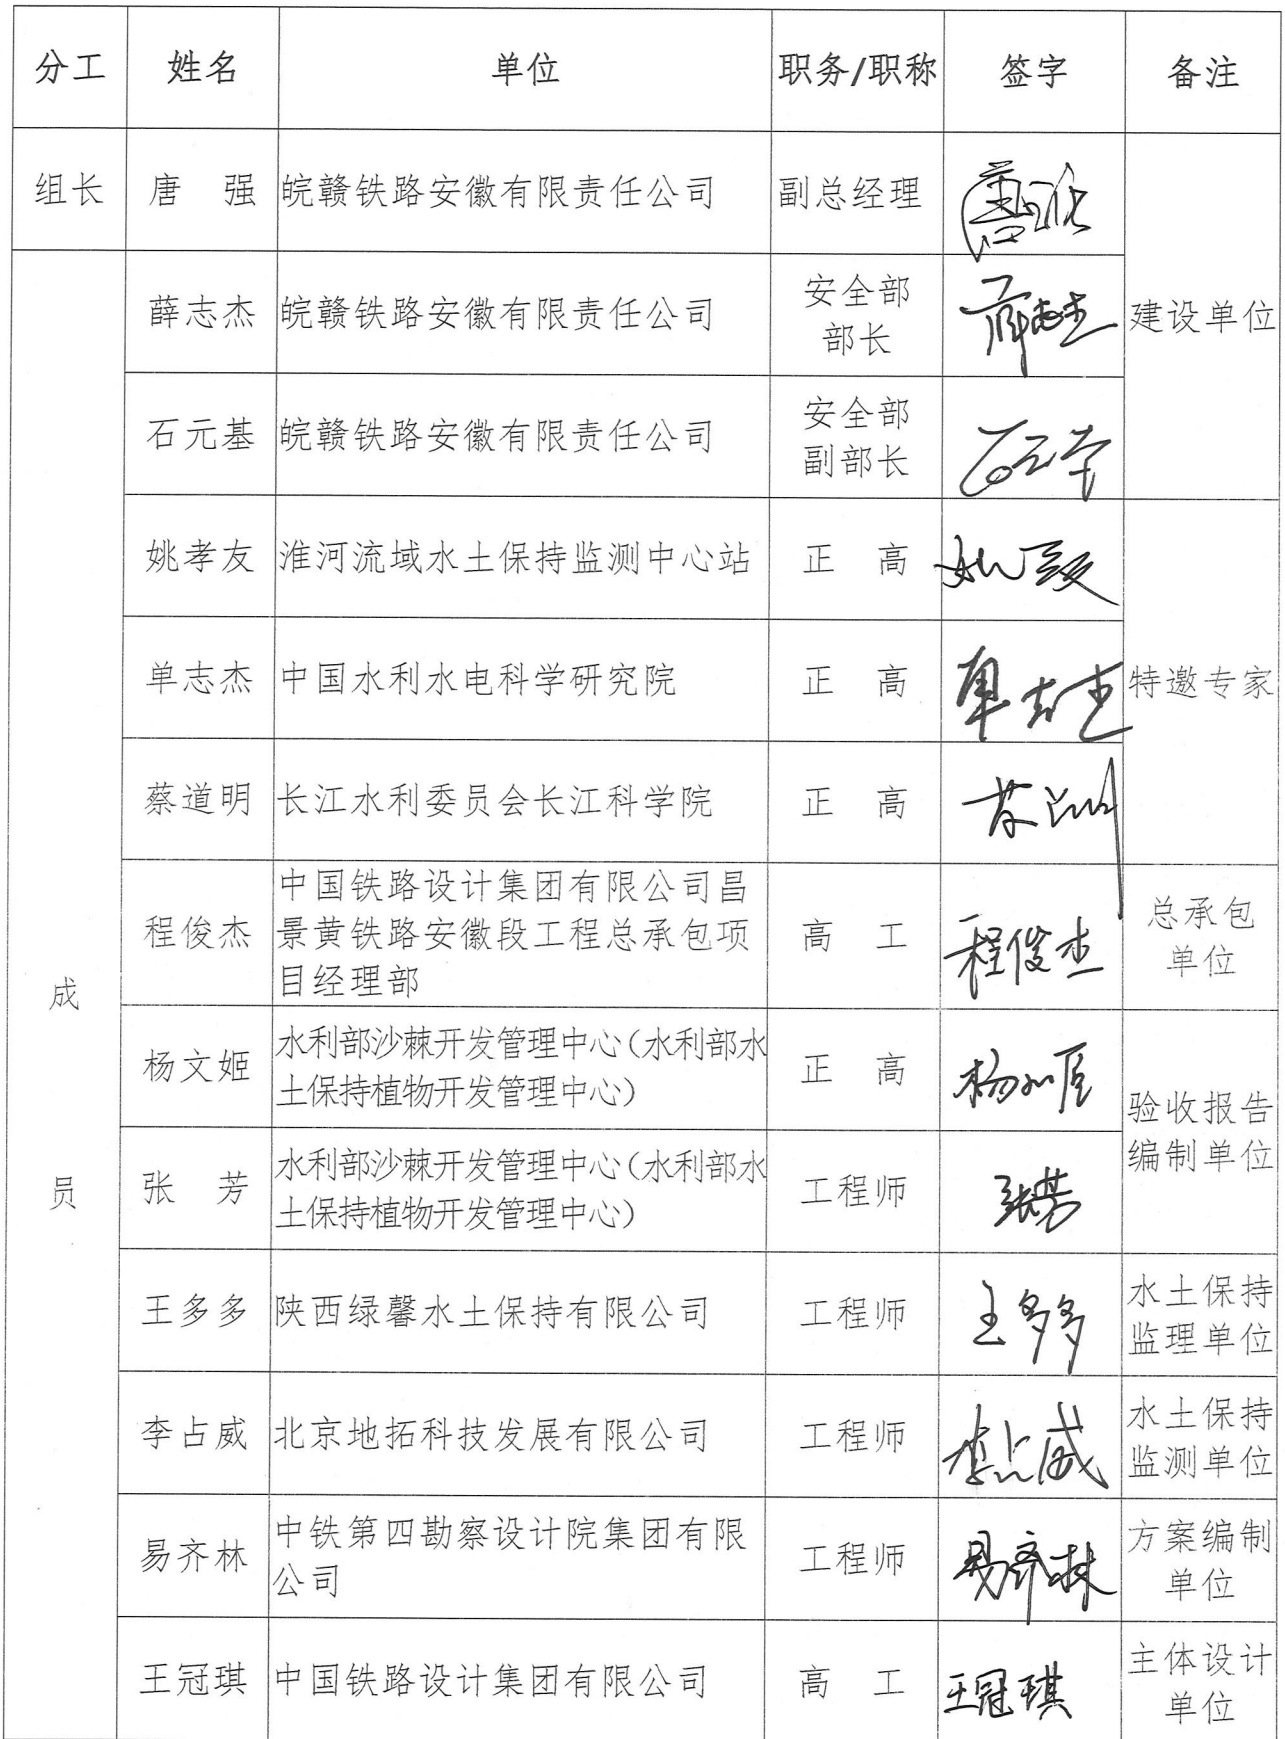 分工 姓名 单位 职务/职称 签字 备注
组长 唐 强 皖赣铁路安徽有限责任公司 副总经理
薛志杰 皖赣铁路安徽有限责任公司 安全部
部长
建设单位
石元基 皖赣铁路安徽有限责任公司 安全部
副部长
石元基
姚孝友 淮河流域水土保持监测中心站 正 高
单志杰 中国水利水电科学研究院 正 高 单志杰 特邀专家
蔡道明 长江水利委员会长江科学院 正 高
程俊杰 中国铁路设计集团有限公司昌
景黄铁路安徽段工程总承包项
目经理部
高 工 程俊杰 总承包
单位
成
员
杨文姬 水利部沙棘开发管理中心（水利部水
土保持植物开发管理中心）
正 高 杨文姬 验收报告
编制单位
张 芳 水利部沙棘开发管理中心（水利部水
土保持植物开发管理中心）
工程师 张芳
王多多 陕西绿馨水土保持有限公司 工程师 王多多 水土保持
监理单位
李占威 北京地拓科技发展有限公司 工程师 李占威 水土保持
监测单位
易齐林 中铁第四勘察设计院集团有限
公司
工程师 易齐林 方案编制
单位
王冠琪 中国铁路设计集团有限公司 高 工 王冠琪 主体设计
单位